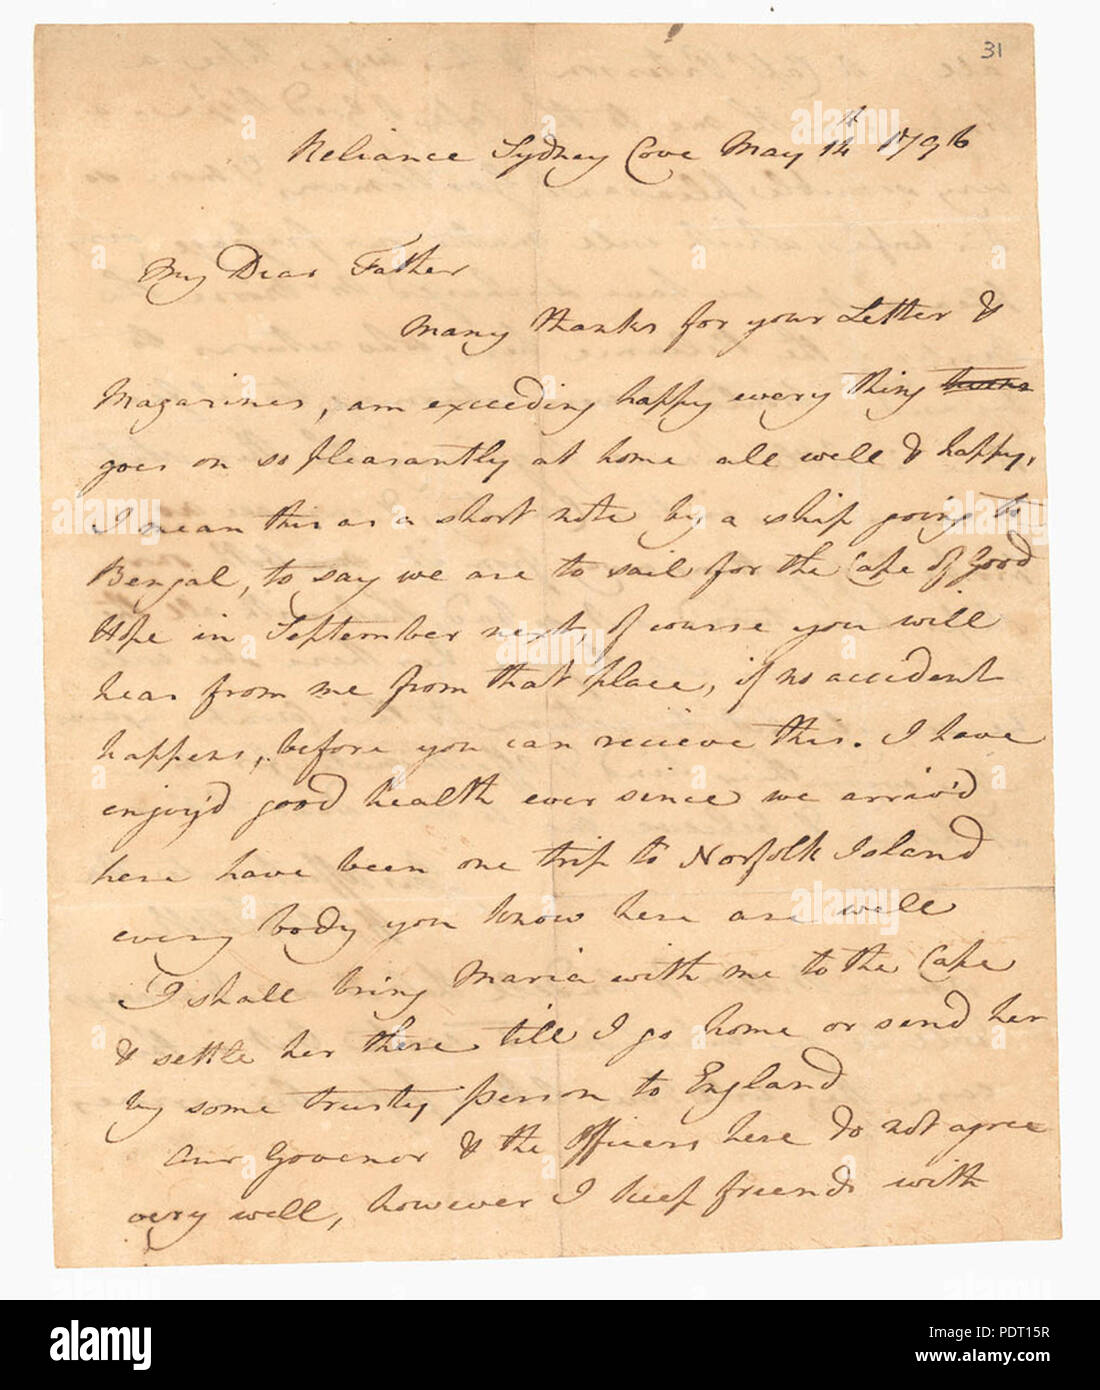 31
Reliance Sydney Cove May 14th 1796
My Dear Father
Many thanks for your Letter &
Magazines, am exceeding happy every thing
goes on so pleasantly at home all well & happy,
I mean this as a short note by a ship going to
Bengal, to say we are to sail for the Cape of Good
Hope in September next, of course you will
hear from me from that place, if no accident
happens, before you can recieve this. I have
enjoy'd good health ever since we arriv'd
here have been one trip to Norfolk Island
every body you know here are well
I shall bring Maria with me to the Cape
& settle her there till I go home or send her
by some trusty person to England
Our Govenor & the Officers here do not agree
very well, however I keep friends with
alamy
Image ID: PDT15R
www.alamy.com